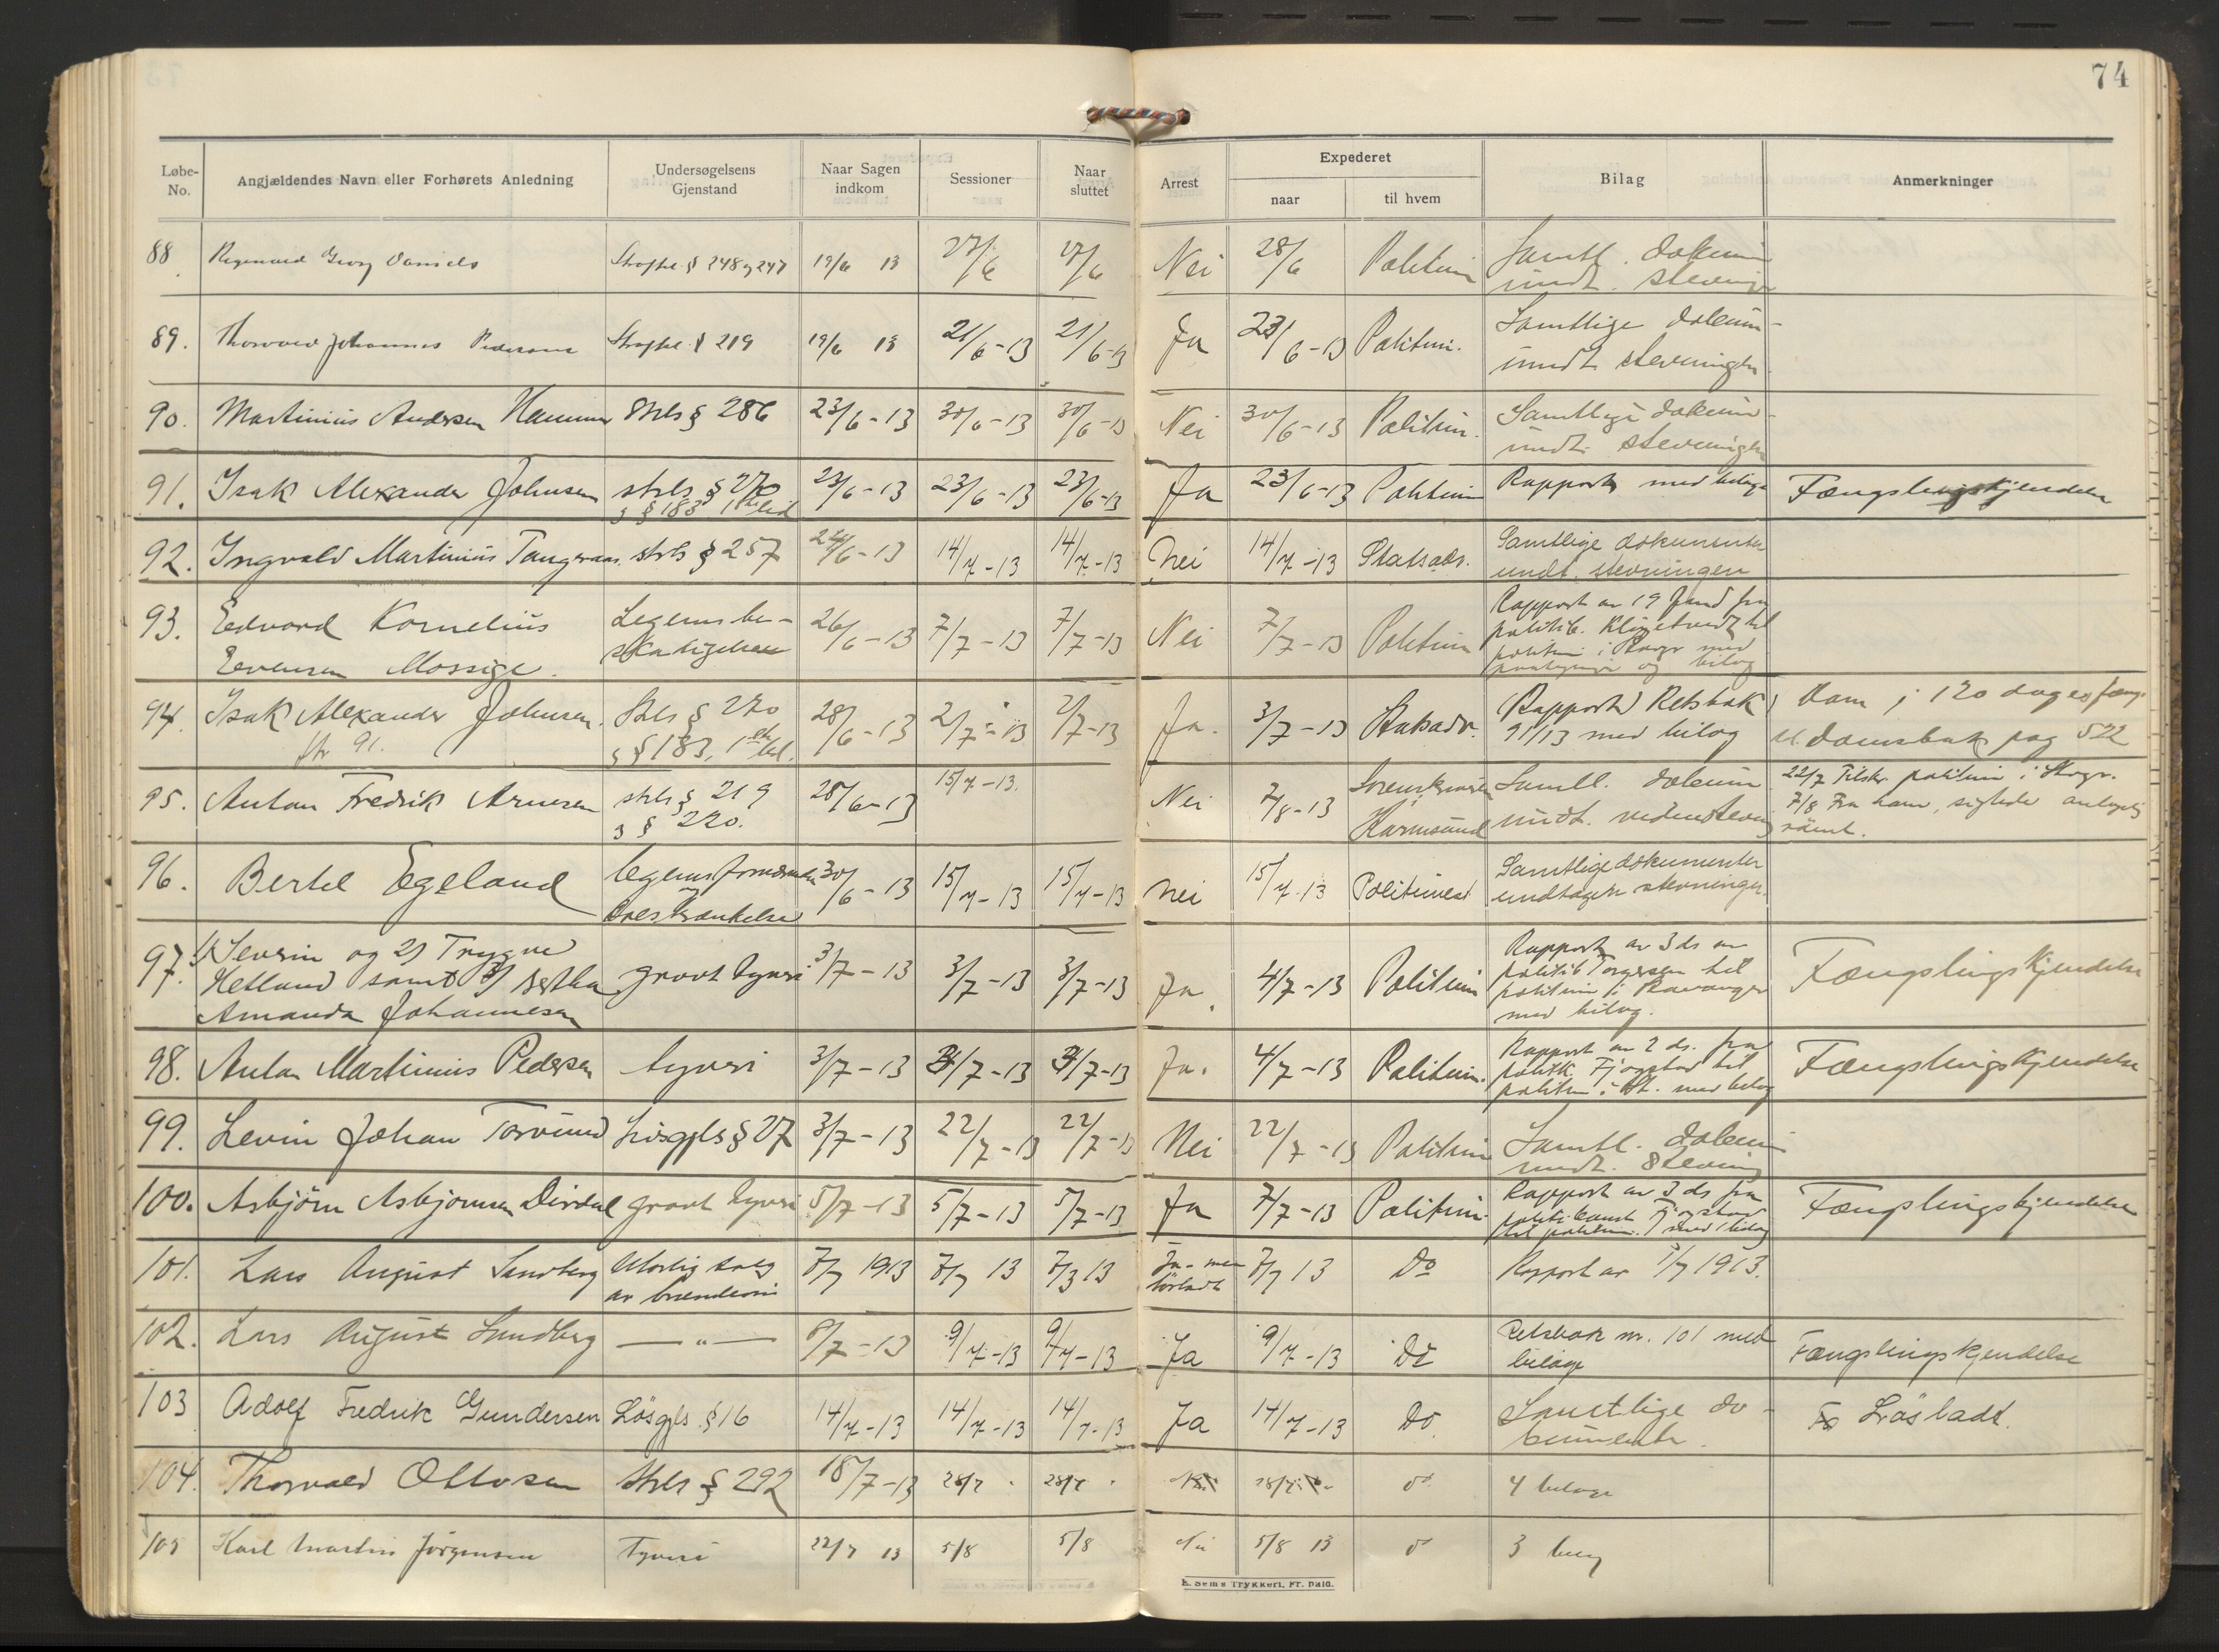 74
Løbe-No. Angjældendes Navn eller Forhørets Anledning Undersøgelsens Gjenstand Naar Sagen indkom Sessioner Naar sluttet Arrest Expederet naar til hvem Bilag Anmerkninger
88 Georg Daniels Straffel § 248 og 247 19/6 13 27/6 27/6 Nei 28/6 Politim Samtl. dokum
undt. stevning
89. Thorvald Johannes Pedersen Straffel § 219 19/6 13 21/6-13 21/6-13 Ja 23/6-13 Politim. Samtlige dokum-
undt stevningen
90. Martinius Andersen Strls § 286 23/6-13 30/6-13 30/6-13 Nei 30/6-13 Politim. Samtlige dokum-
undt. stevningen
91. Isak Alexander Johnsen strls § 270 23/6-13 23/6-13 23/6-13 Ja 23/6-13 Politim Rapport med bilag Fængslingskjendelse
§ 183 1ste led
92. Ingvald Martinius Tangeraas strls § 257 24/6-13 14/7-13 14/7-13 Nei 14/7-13 Statsadv. Samtlige dokumenter
undt. stevningen
93. Edvard Kornelius Legemsbe- 26/6-13 7/7-13 7/7-13 Nei 7/7-13 Politim Rapport av 19 fra
Evensen Mossige skadigelse politib. til
politim i med
og bilag
94. Isak Alexander Johnsen. Strls § 270 28/6-13 2/7-13 2/7-13 Ja. 3/7-13 Statsadv. (Rapport) Retsbok Dom, 120 dages fæng.
fr 91. § 183, 1ste led. 91/13 med bilag domsbok pag 522
95. Anton Fredrik Arnesen strls § 219 28/6-13 15/7-13. Nei 7/8-13 Sorenskriveren Samtl. dokum 22/7 Tilskr. politim i
§ 270. Karmsund undt. 7/8 Fra ham, sigtede
rømt.
96. Bertel Egeland legemsfornærmelse 30/6-13 15/7-13 15/7-13 Nei 15/7-13 Politimest Samtlige dokumenter
og æreskrænkelse undtagen stevningen.
97. 1) Severin og 2) Trygve
Hetland samt 3) Bertha grovt tyveri 3/7-13 3/7-13 3/7-13 Ja. 4/7-13 Politim Rapport av 3 ds av Fængslingskjendelse
Amanda Johannesen politib Torgersen til
politim i Stavanger
med bilag.
98. Anton Martinius Pedersen tyveri 3/7-13 3/7-13 3/7-13 Ja. 4/7-13 Politim. Rapport av 2 ds. fra Fængslingskjendelse
politik. Fjogstad til
politim i St. med bilag
99. Levin Johan Torvund Løsgjls § 27 3/7-13 22/7-13 22/7-13 Nei 22/7-13 Politim Samtl. dokum
undt. stevning
100. Asbjørn Asbjørnsen Dirdal grovt tyveri 5/7-13 5/7-13 5/7-13 Ja 7/7-13 Politim. Rapport av 3 ds fra Fængslingskjendelse
politikonst Fjogstad
til politim. med 1 bilag
101. Lars August Sundberg Ulovlig salg 7/7 1913 7/7 13 7/7 13 Ja - men 7/7 13 Do Rapport av 7/7 1913.
av brændevin løsladt
102. Lars August Sundberg — " — 9/7-13 9/7-13 9/7-13 Ja 9/7-13 Do Retsbok nr. 101 med Fængslingskjendelse
bilag
103 Adolf Fredrik Gundersen Løsgjls. § 16 14/7-13 14/7-13 14/7-13 Ja 14/7-13 Do. Samtlige do- Løsladt.
kumenter.
104. Thorvald Ottosen Strls § 292 18/7-13 28/7 28/7 Nei 28/7 do 4 bilage
105 Karl Martin Jørgensen Tyveri 22/7 13 5/8 5/8 Nei 5/8 13 do 3 bilag
E. Sems Trykkeri, Fr. hald.